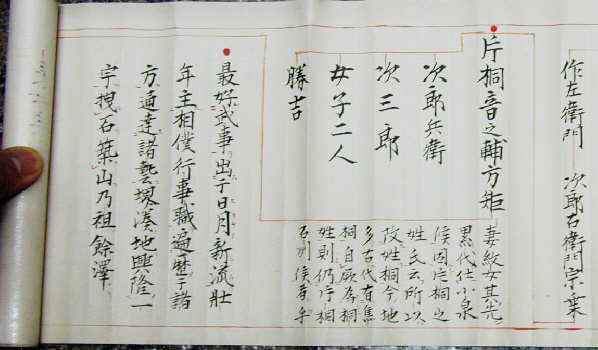 作左衛門 次郎右衛門宗葉
片桐音之輔方矩
妻紋女其先
累代仕小泉
侯因片桐之
姓氏云所以
改姓桐今地
多古代有焦
桐自厥為桐
姓則仍片桐
次郎兵衛
次三郎
女子二人
勝吉
最好武事出于日月新流壮
年主相僕行事職遍歴于諸
方通達諸藝塊湊地興隆一
宇搜石築山乃祖餘澤